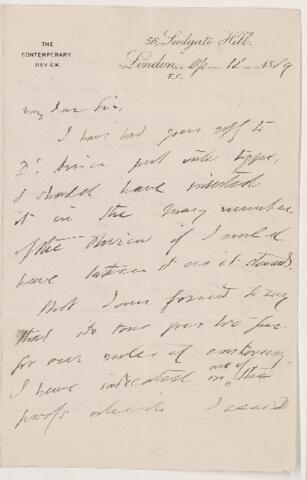 THE
CONTEMPORARY
REVIEW
56, Ludgate Hill,
London, 18 1889
E.C.
My dear Sir,
I have had your reply to
Dr. put into type,
I should have inserted
it in the number
of the Review if I could
have taken it as it stands.
But I am forced to say
that its tone goes too far
for our rules of
I have indicated on the
proofs which I send